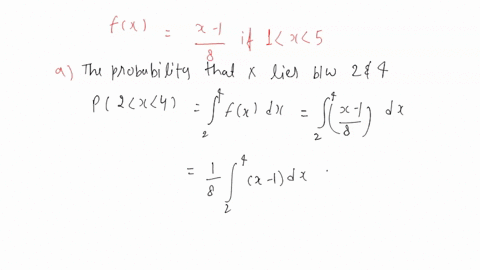 f(x) = x-1/8 if 1<x<5
a) The probability that x lies b/w 2 & 4
P(2<x<4) = ∫₂⁴ f(x) dx = ∫₂⁴ (x-1/8) dx
= 1/8 ∫₂⁴ (x-1) dx